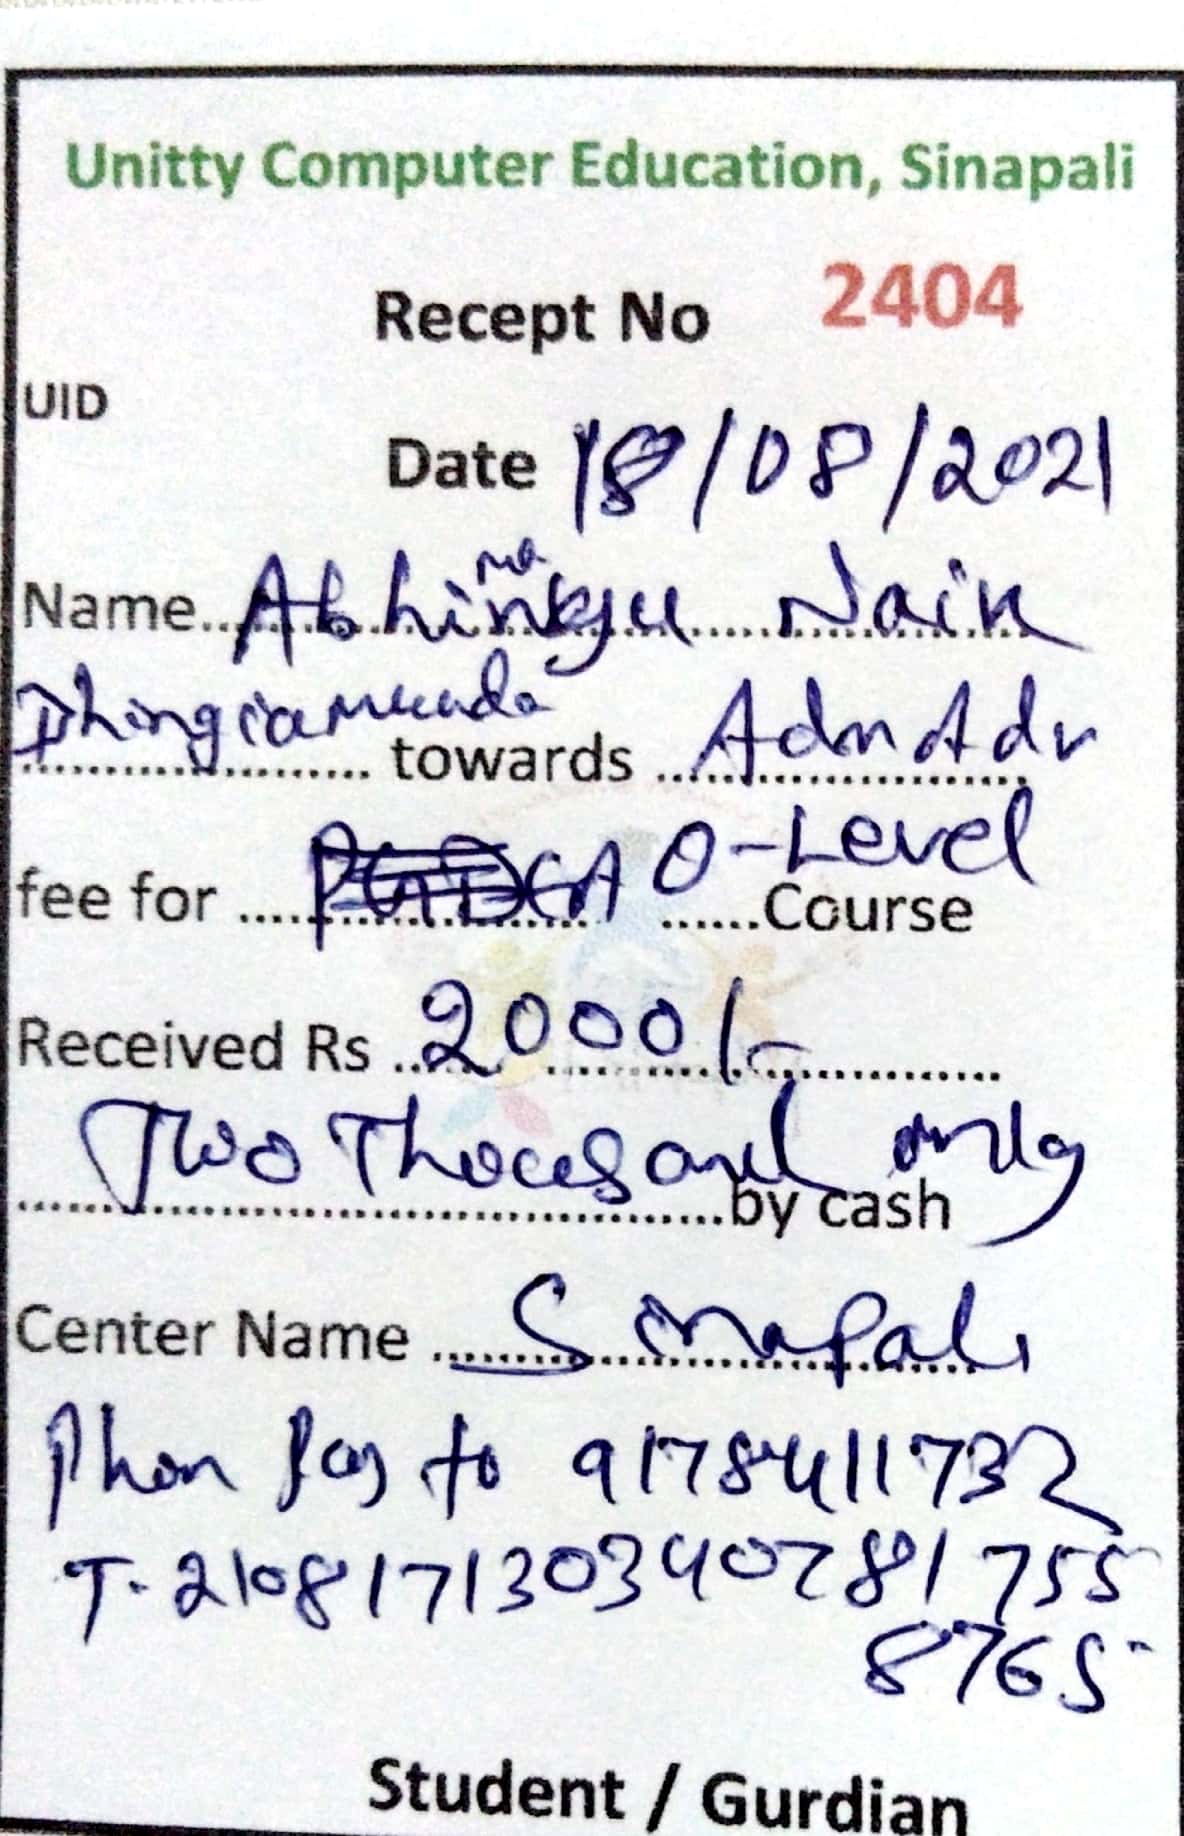 Unitty Computer Education, Sinapali
Recept No 2404
UID
Date 18/08/2021
Name Abhimanyu Naik
Dhingiamunda towards Adm Adv
fee for O-Level Course
Received Rs 2000/-
Two Thousand only
by cash
Center Name Sinapali
Phon Pay to 9178411732
T-210817130340781755
8765
Student / Gurdian